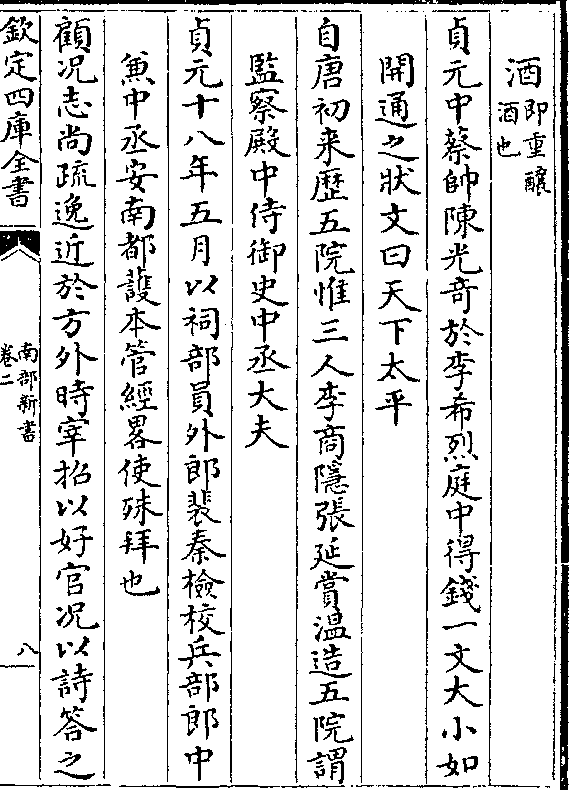 酒即重釀酒也
貞元中蔡帥陳光竒於李希烈庭中得錢一文大小如
開通之狀文曰天下太平
自唐初来歴五院惟三人李商隱張延賞温造五院謂
監察殿中侍御史中丞大夫
貞元十八年五月以祠部員外郎裴秦檢校兵部郎中
兼中丞安南都䕶本管經畧使殊拜也
顧况志尚疏逸近於方外時宰招以好官况以詩答之
欽定四庫全書
南部新書
卷二
八